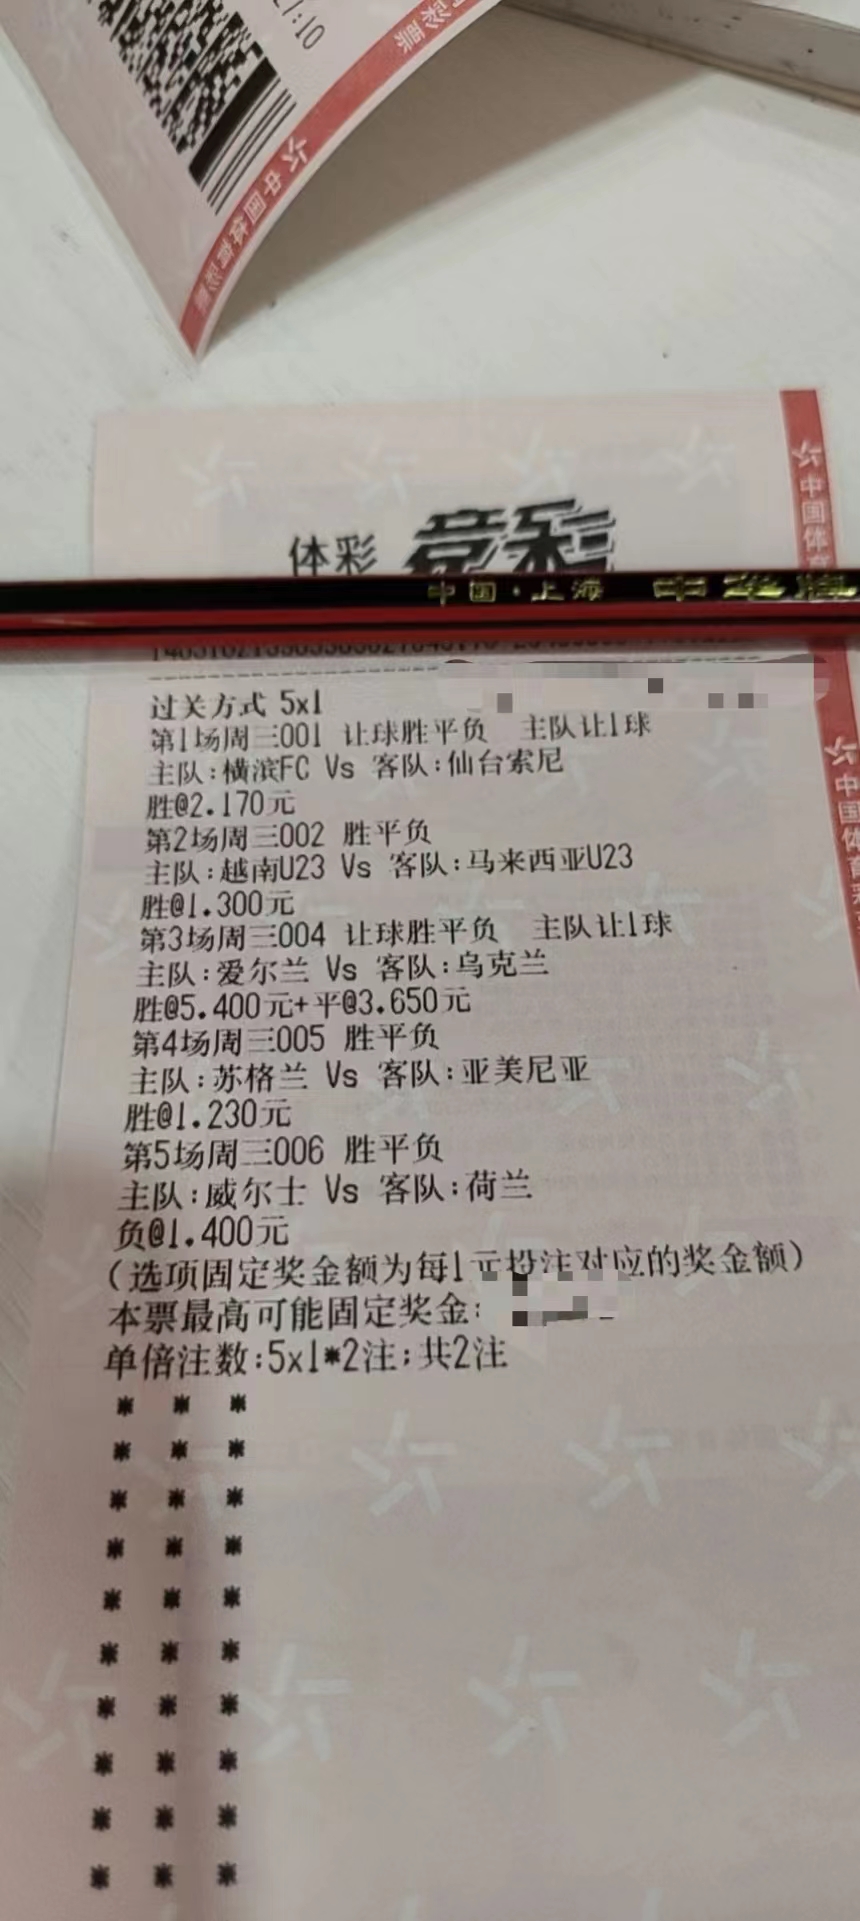 27:10
中国体育彩票
体彩 竞彩
中国·上海 中华牌
过关方式 5x1
第1场周三001 让球胜平负 主队让1球
主队:横滨FC Vs 客队:仙台索尼
胜@2.170元
第2场周三002 胜平负
主队:越南U23 Vs 客队:马来西亚U23
胜@1.300元
第3场周三004 让球胜平负 主队让1球
主队:爱尔兰 Vs 客队:乌克兰
胜@5.400元+平@3.650元
第4场周三005 胜平负
主队:苏格兰 Vs 客队:亚美尼亚
胜@1.230元
第5场周三006 胜平负
主队:威尔士 Vs 客队:荷兰
负@1.400元
(选项固定奖金额为每1元投注对应的奖金额)
本票最高可能固定奖金:
单倍注数:5x1*2注;共2注
* * *
* * *
* * *
* * *
* * *
* * *
* * *
* * *
* * *
* * *
中国体育
中国体育彩